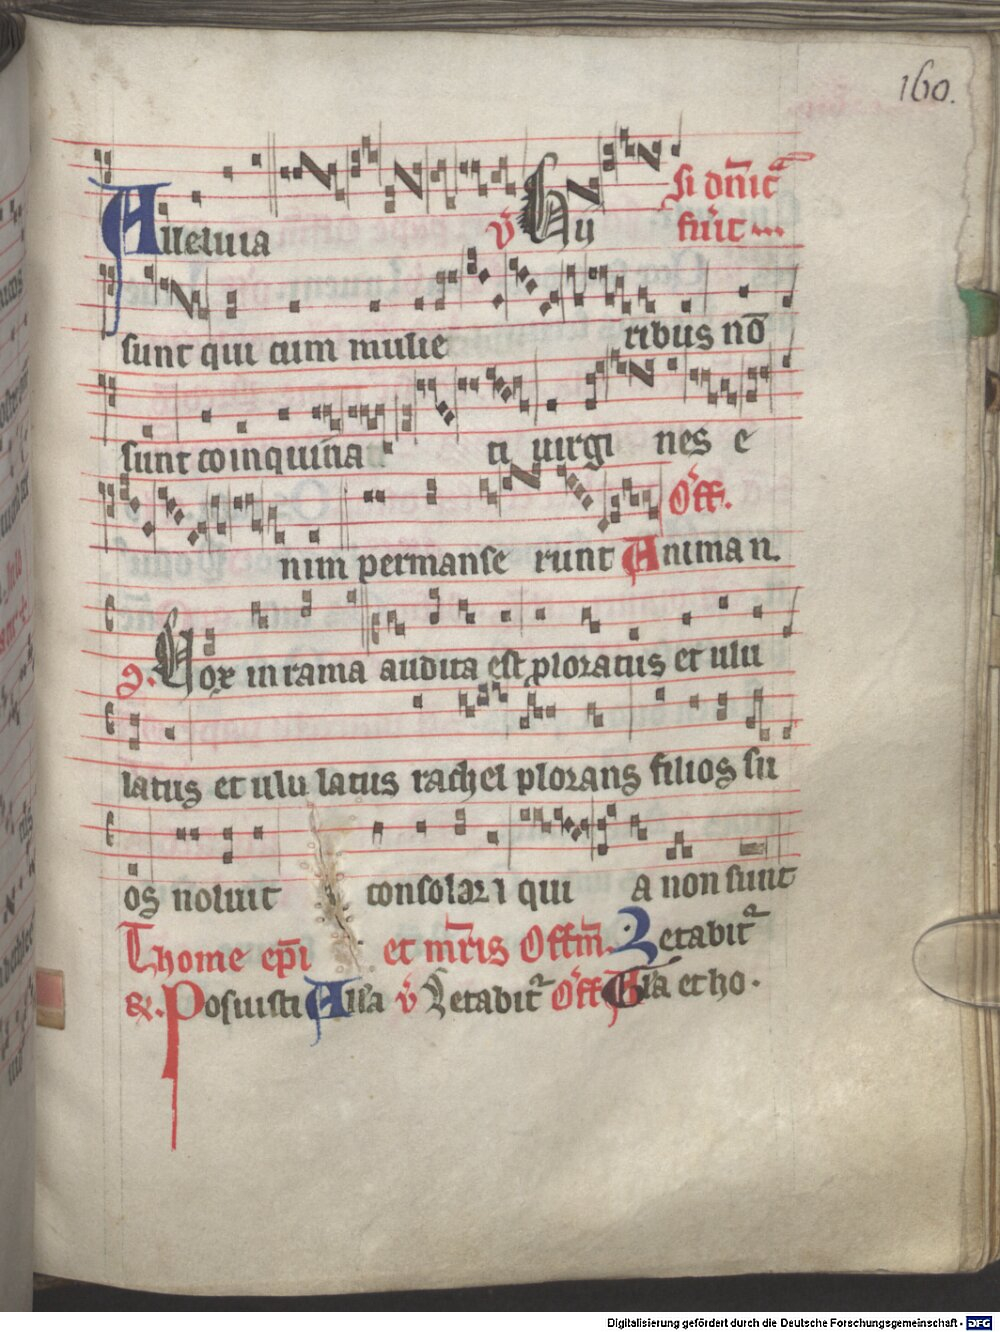 160.
Alleluia v̄ Hij Si dn̄ica fūit
sunt qui cum mulie ribus nō
sunt coinquina ti uirgi nes e
nim permanse runt Off. Anima n.
Ɔ. Uox in rama audita est ploratus et ulu
latus et ulu latus rachel plorans filios su
os noluit consolari qui a non sunt
Thome ep̄i et m̄ris Offm̄. Letabit᷑
R. Posuisti All'a v̄ Letabit᷑ Off Gl'a et ho.
Digitalisierung gefördert durch die Deutsche Forschungsgemeinschaft - DFG